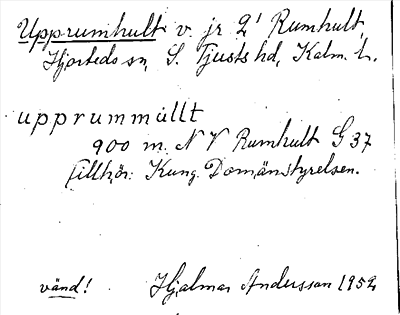 Upprumhult v. jr 2¹ Rumhult,
Hjorteds sn, S. Tjusts hd, Kalm. L.
upprummúllt
900 m. N V Rumhult G 37
tillhör: Kung. Domänstyrelsen.
vänd! Hjalmar Andersson 1952